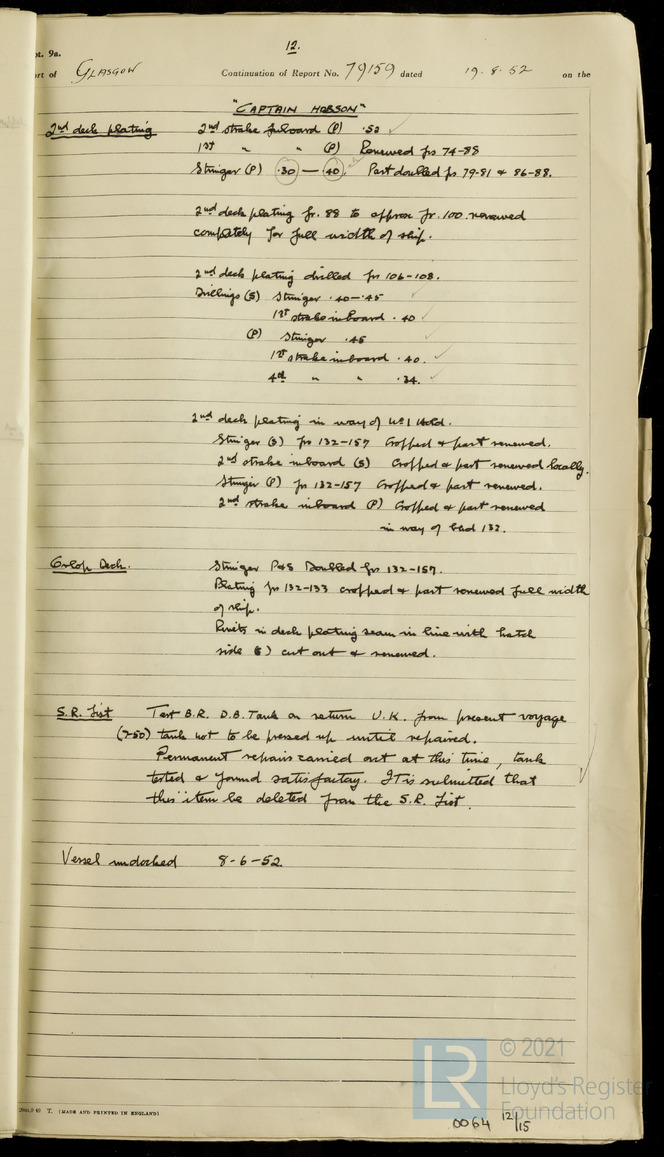 12.
pt. 9a.
rt of GLASGOW Continuation of Report No. 79159 dated 19.8.52 on the
"CAPTAIN HOBSON"
2nd deck plating 2nd strake inboard (P) .52 ✓
1st " " (P) Renewed frs 74-88
Stringer (P) .30 — .40. Part doubled frs 79-81 & 86-88.
2nd deck plating fr. 88 to approx fr. 100 renewed
completely for full width of ship.
2nd deck plating drilled frs 106-108.
Drillings (S) Stringer .40-.45 ✓
1st strake inboard .40 ✓
(P) Stringer .45 ✓
1st strake inboard .40. ✓
4th " " .34. ✓
2nd deck plating in way of No 1 Hold.
Stringer (S) frs 132-157 Cropped & part renewed.
2nd strake inboard (S) Cropped & part renewed locally.
Stringer (P) frs 132-157 Cropped & part renewed.
2nd strake inboard (P) Cropped & part renewed
in way of bhd 132.
Orlop Deck. Stringer P&S Doubled frs 132-157.
Plating frs 132-133 cropped & part renewed full width
of ship.
Rivets in deck plating seam in line with hatch
side (S) cut out & renewed.
S.R. List Test B.R. D.B. Tank on return U.K. from present voyage
(7-50) tank not to be pressed up until repaired.
Permanent repairs carried out at this time, tank
tested & found satisfactory. It is submitted that
this item be deleted from the S.R. List.
Vessel undocked 8-6-52.
T. (MADE AND PRINTED IN ENGLAND)
LR © 2021
Lloyd's Register
Foundation
0064 12/15